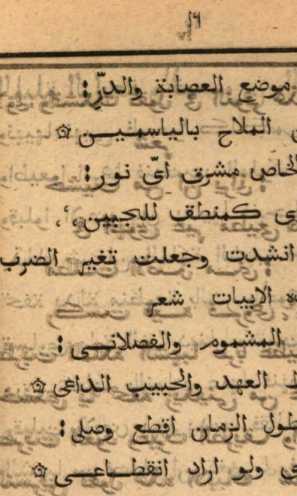 ١٦
موضع العصابة والدرّ:
الملاح بالياسميـــن ۞
الخاص مشرق اىّ نور:
كمنطقـ للجبين ،'،
انشدت وجعلت تغير الضرب
الابيات شعر
المشموم والفصلانـــى:
العهد والحبيب الداعى ۞
طول الزمان اقطع وصلى:
ولو اراد انقطـاعـــى ۞